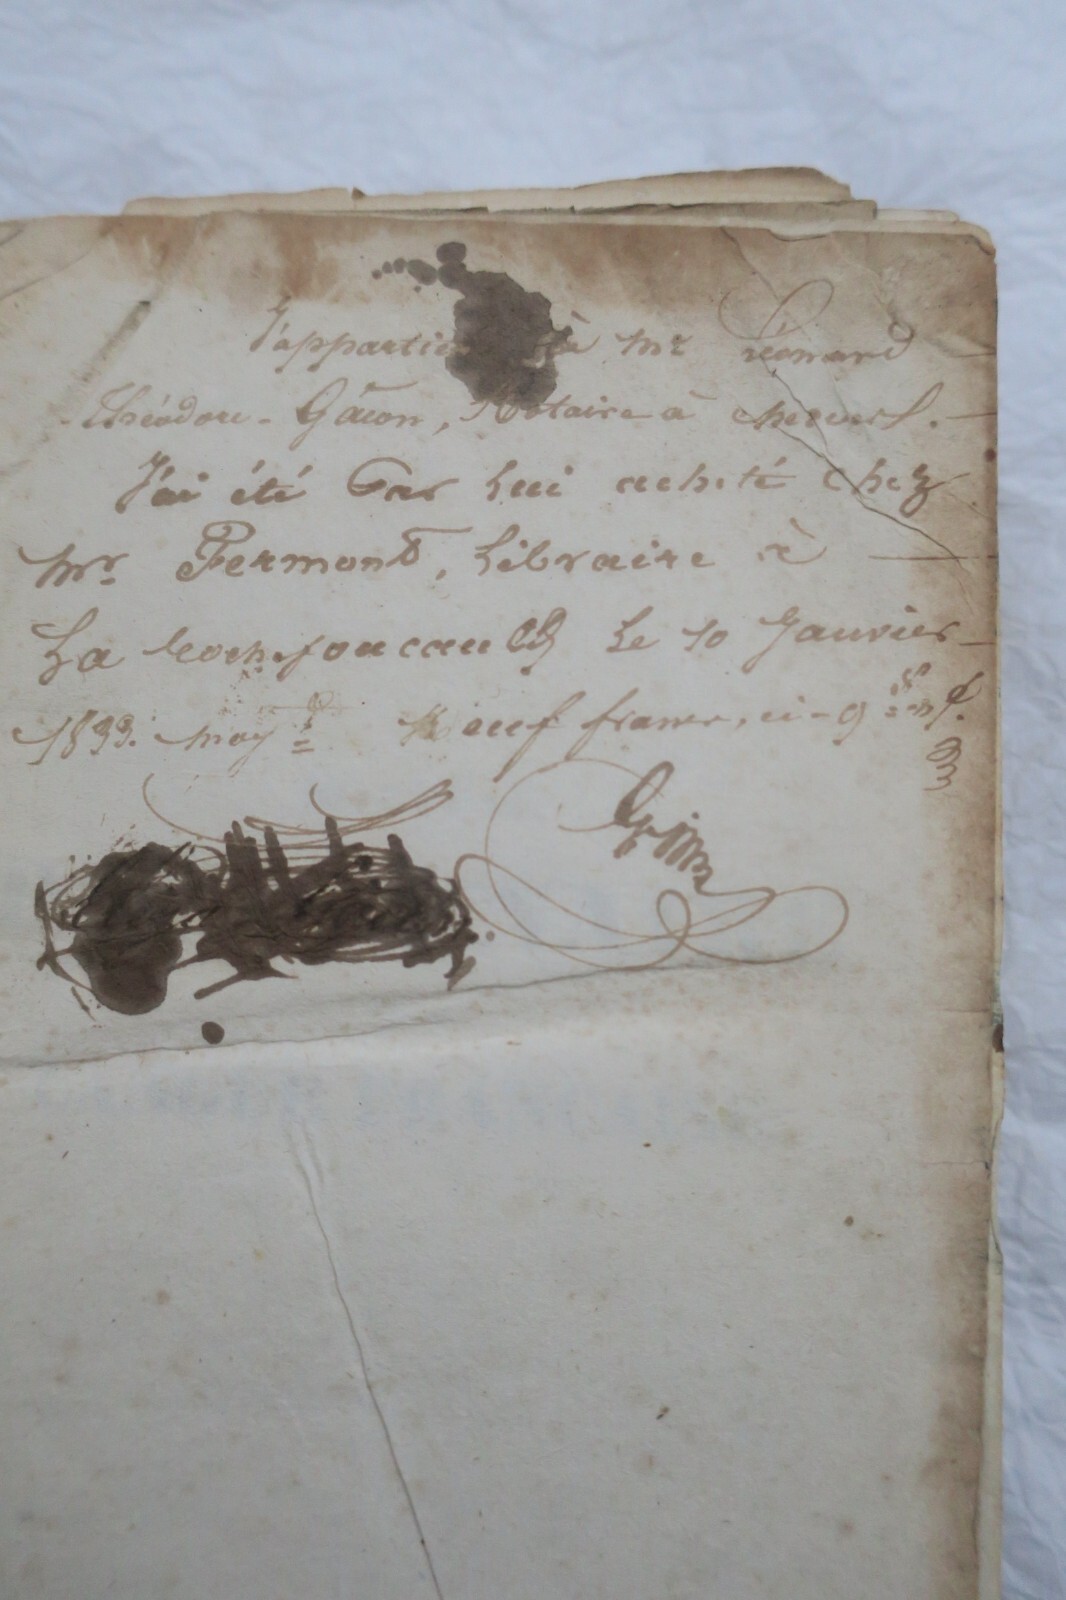 J'appartie à Mr Léonard
Théodore - Gâcon, Notaire à
J'ai été Par Lui acheté Chez
Mr. Fermond, Libraire à
La Rochefoucauld Le 10 Janvier
1833. moy.t Neuf francs, ci - 9